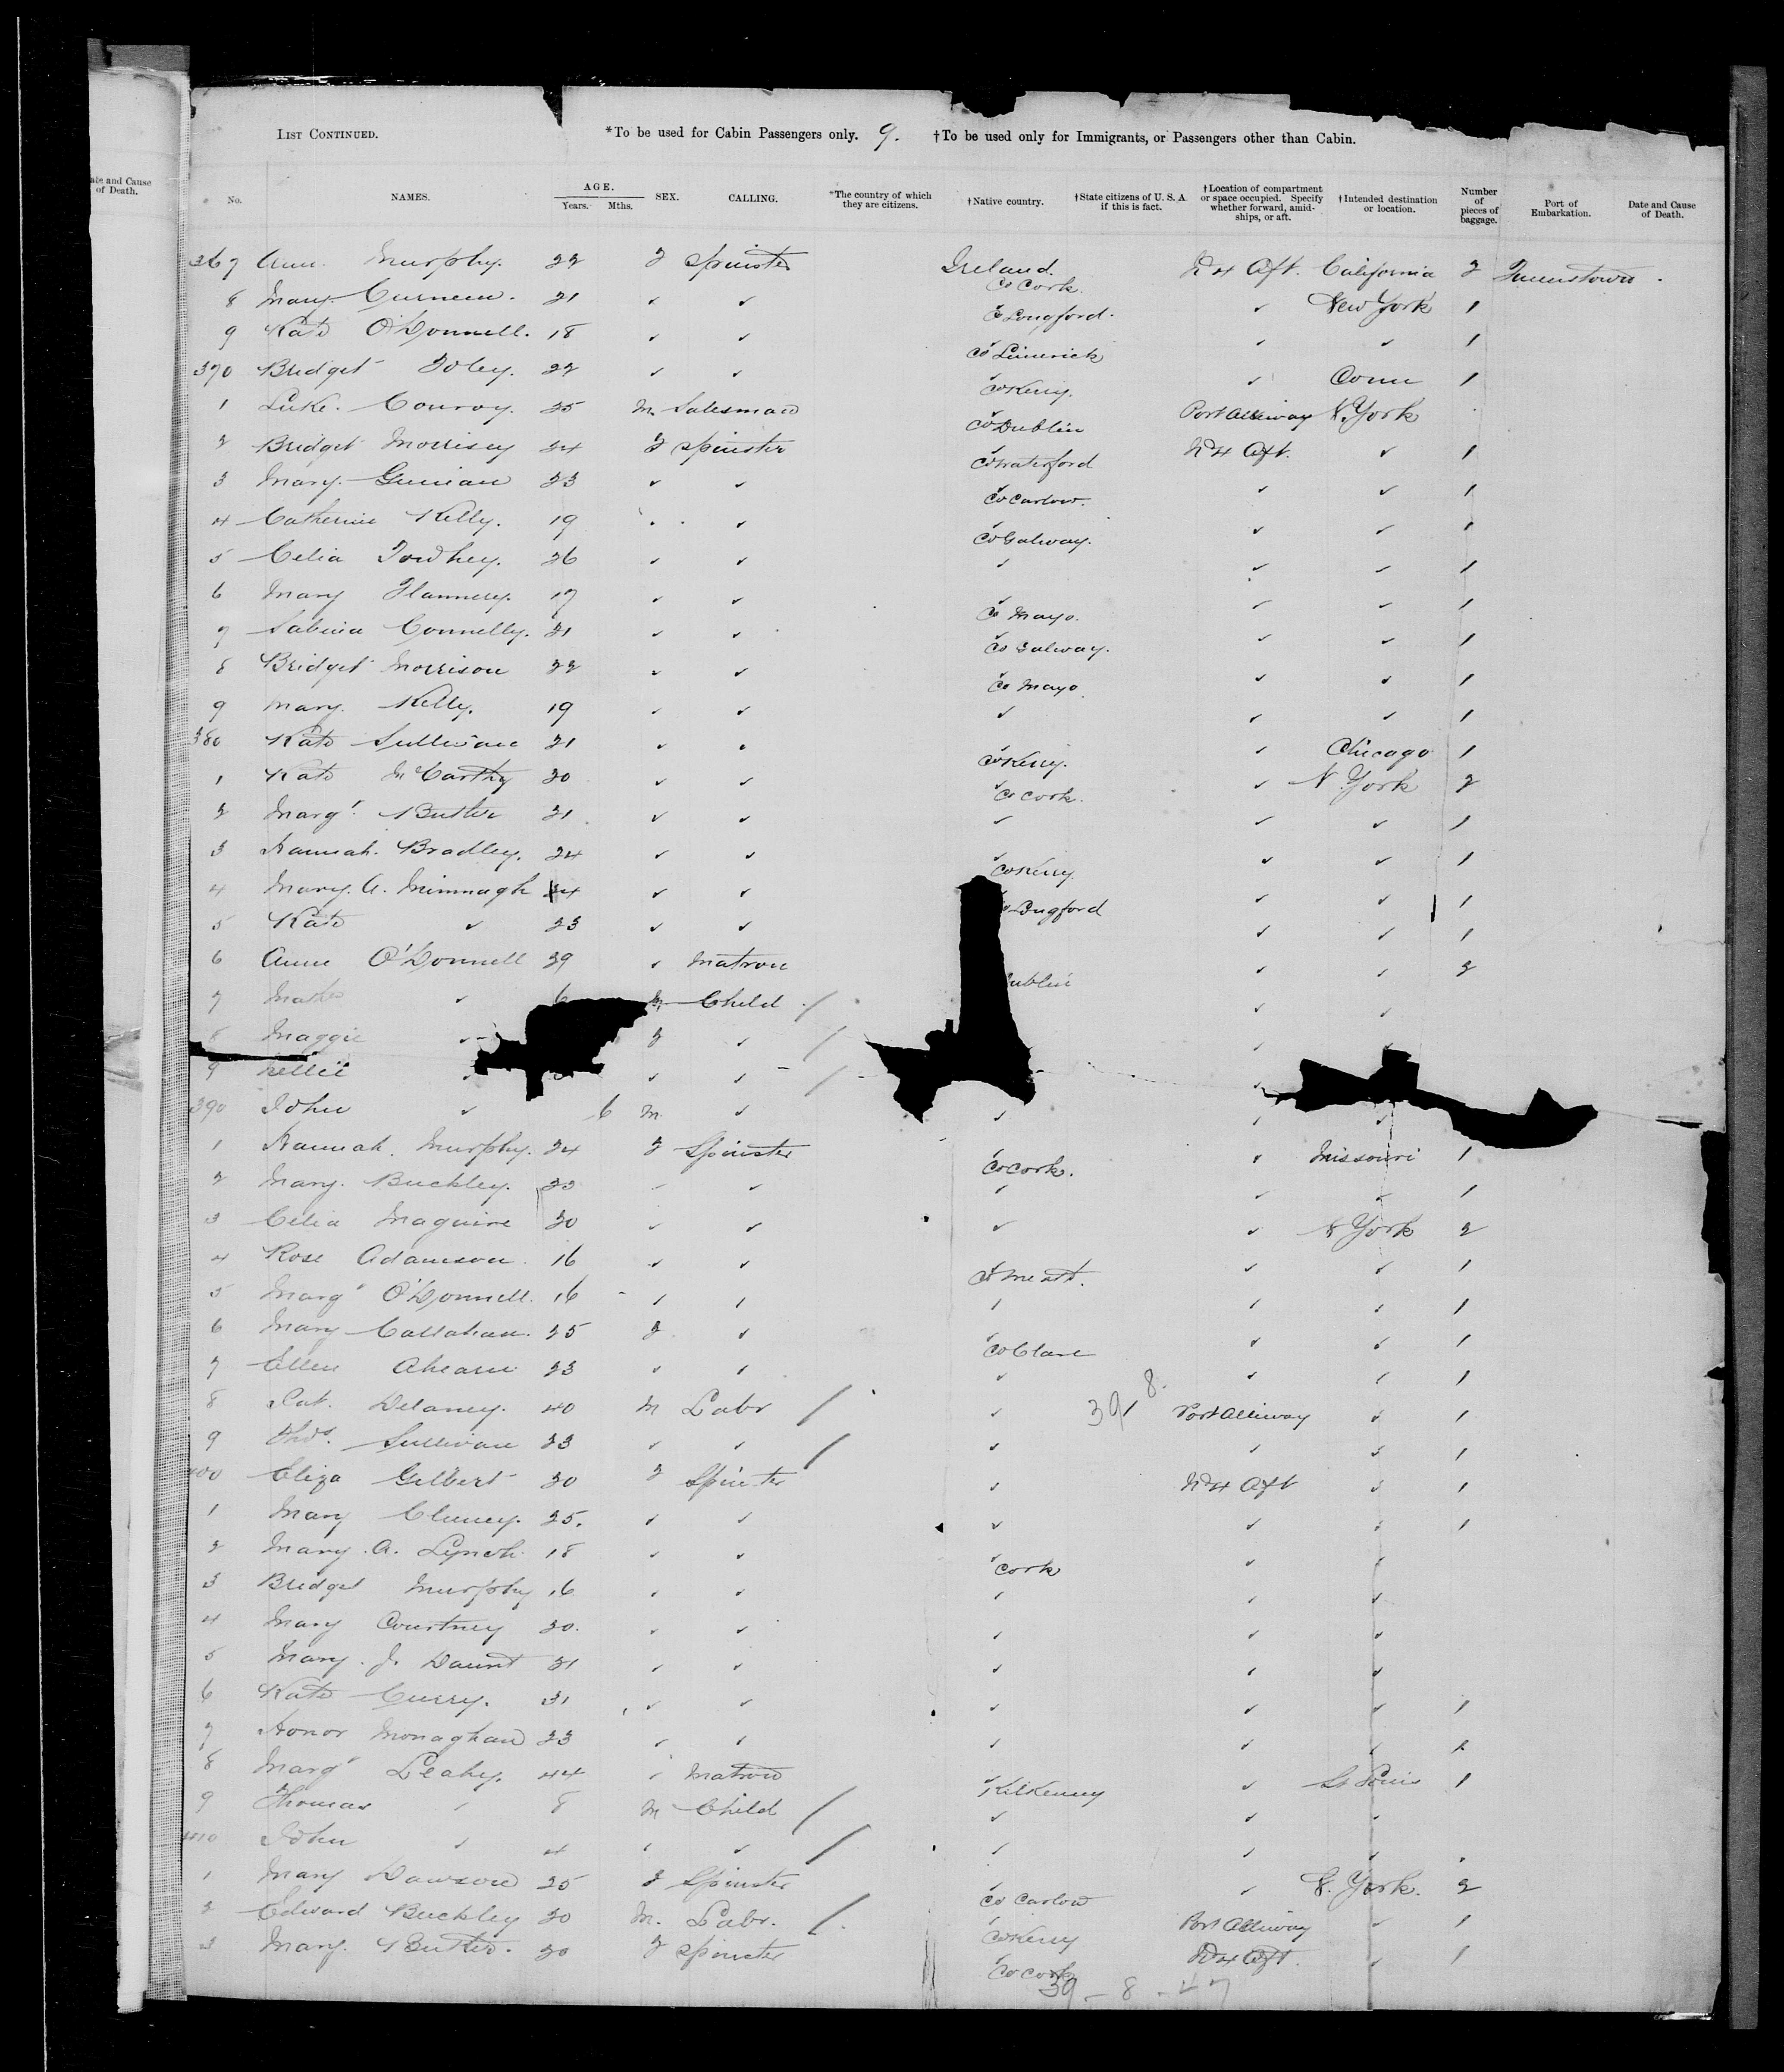 ate and Cause of Death.
LIST CONTINUED. *To be used for Cabin Passengers only. 9. †To be used only for Immigrants, or Passengers other than Cabin.
No. NAMES. AGE. Years. Mths. SEX. CALLING. *The country of which they are citizens. †Native country. †State citizens of U. S. A. if this is fact. †Location of compartment or space occupied. Specify whether forward, amidships, or aft. †Intended destination or location. Number of pieces of baggage. Port of Embarkation. Date and Cause of Death.
367 Ann Murphy. 22 F Spinster Ireland. Co Cork. No 4 Aft. California 2 Queenstown.
8 Mary 21 ✓ ✓ Co Longford. ✓ New York 1
9 Kate O'Donnell. 18 ✓ ✓ Co Limerick ✓ ✓ 1
370 Bridget Foley. 22 ✓ ✓ Co Kerry. ✓ Conn 1
1 Luke Conroy. 25 M. Salesman Co Dublin Port Alleway N. York
2 Bridget Morrisey 24 F Spinster Co Waterford No 4 Aft. ✓ 1
3 Mary 23 ✓ ✓ Co Carlow. ✓ ✓ 1
4 Catherine Kelly. 19 ✓ Co Galway. ✓ ✓ 1
5 Celia 26 ✓ ✓ ✓ ✓ ✓ 1
6 Mary Flannery. 17 ✓ ✓ Co Mayo. ✓ ✓ 1
7 Sabina Connelly. 21 ✓ ✓ Co Galway. ✓ ✓ 1
8 Bridget Morrison 22 ✓ ✓ Co Mayo. ✓ ✓ 1
9 Mary Kelly. 19 ✓ ✓ ✓ ✓ ✓ 1
380 Kate Sullivan 21 ✓ ✓ Co Kerry. ✓ Chicago 1
1 Kate McCarthy 20 ✓ ✓ Co Cork. ✓ N. York 2
2 Margt Butler 21 ✓ ✓ ✓ ✓ ✓ 1
3 Hannah Bradley. 24 ✓ ✓ Co Kerry. ✓ ✓ 1
4 Mary A. Mimnagh 24 ✓ ✓ Longford ✓ ✓ 1
5 Kate ✓ 23 ✓ ✓ ✓ ✓ 1
6 Anne O'Donnell 39 ✓ Matron ublin ✓ ✓ 2
7 ✓ 6 M Child / ✓ ✓
8 Maggie ✓ F ✓ / ✓ ✓
9 Nellie ✓ ✓ ✓ / ✓
390 John ✓ 6 M. ✓ ✓ ✓ ✓
1 Hannah Murphy. 24 F Spinster Co Cork. ✓ Missouri 1
2 Mary Buckley. ✓ ✓ ✓ ✓ ✓ 1
3 Celia Maguire 20 ✓ ✓ ✓ ✓ N York 2
4 Rose Adamson. 16 ✓ ✓ Co Meath. ✓ ✓ 1
5 Margt O'Donnell. 16 ✓ ✓ ✓ ✓ ✓ 1
6 Mary Callahan. 25 F. ✓ Co Clare ✓ ✓ 1
7 Ellen Ahearn 23 ✓ ✓ ✓ ✓ ✓ 1
8 Pat. Delaney. 40 M Labr / ✓ 39-8- Port Alleway ✓ 1
9 Thos. Sullivan 23 ✓ ✓ / ✓ ✓ ✓ 1
400 Eliza Gilbert 20 F Spinster ✓ No 4 Aft ✓ 1
1 Mary Cluney. 25. ✓ ✓ ✓ ✓ ✓ 1
2 Mary A. Lynch. 18 ✓ ✓ Cork ✓ ✓
3 Bridget Murphy 16 ✓ ✓ ✓ ✓ ✓
4 Mary Courtney 20. ✓ ✓ ✓ ✓ ✓
5 Mary J. Daunt 21 ✓ ✓ ✓ ✓ ✓
6 Kate Curry. 31 ✓ ✓ ✓ ✓ ✓ 1
7 Honor Monaghan 23 ✓ ✓ ✓ ✓ ✓
8 Margt Leahy. 44 ✓ Matron Kilkenny ✓ St Louis 1
9 Thomas ✓ 8 M Child / ✓ ✓ ✓
410 John ✓ 4 ✓ ✓ / ✓ ✓ ✓
1 Mary Dawson 25 F Spinster Co Carlow ✓ N. York. 2
2 Edward Buckley 20 M. Labr. / Co Kerry Port Alleway ✓ 1
3 Mary Butler. 20 F Spinster Co Cork No 4 Aft. ✓ 1
39 - 8 - 47